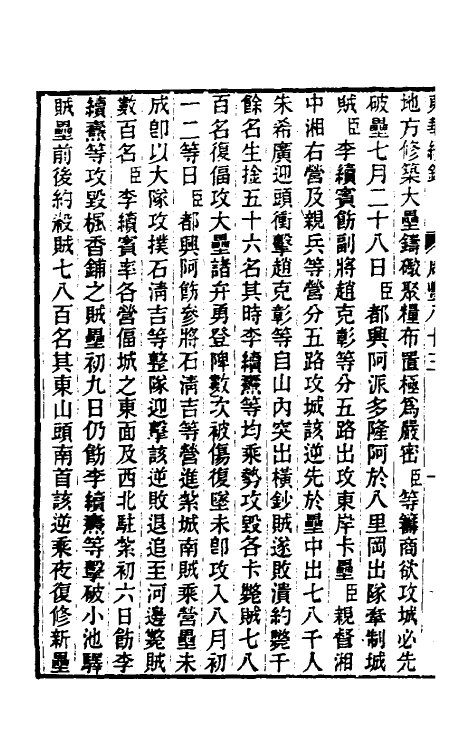 地方修築大壘鑄礮聚糧布置極爲嚴密臣等籌商欲攻城必先
破壘七月二十八日臣都興阿派多隆阿於八里岡出隊牽制城
賊臣李續賓飭副將趙克彰等分五路出攻東岸卡壘臣親督湘
中湘右營及親兵等營分五路攻城該逆先於壘中出七八千人
朱希廣迎頭衝擊趙克彰等自山內突出橫鈔賊遂敗潰約斃千
餘名生擒五十六名其時李續燾等均乘勢攻毀各卡斃賊七八
百名復偪攻大壘諸弁勇登陴數次被傷復墜未卽攻入八月初
一二等日臣都興阿飭參將石淸吉等營進紮城南賊乘營壘未
成卽以大隊攻撲石淸吉等整隊迎擊該逆敗退追至河邊斃賊
數百名臣李續賓率各營偪城之東面及西北駐紮初六日飭李
續燾等攻毀楓香鋪之賊壘初九日仍飭李續燾等擊破小池驛
賊壘前後約殺賊七八百名其東山頭南首該逆乘夜復修新壘